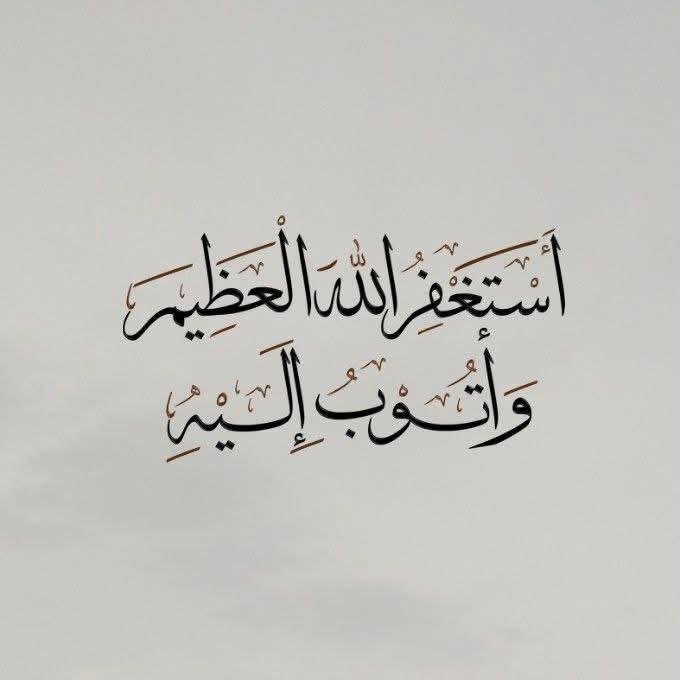 أَسْتَغْفِرُ اللهَ الْعَظِيمَ
وَأَتُوْبُ إِلَيْهِ